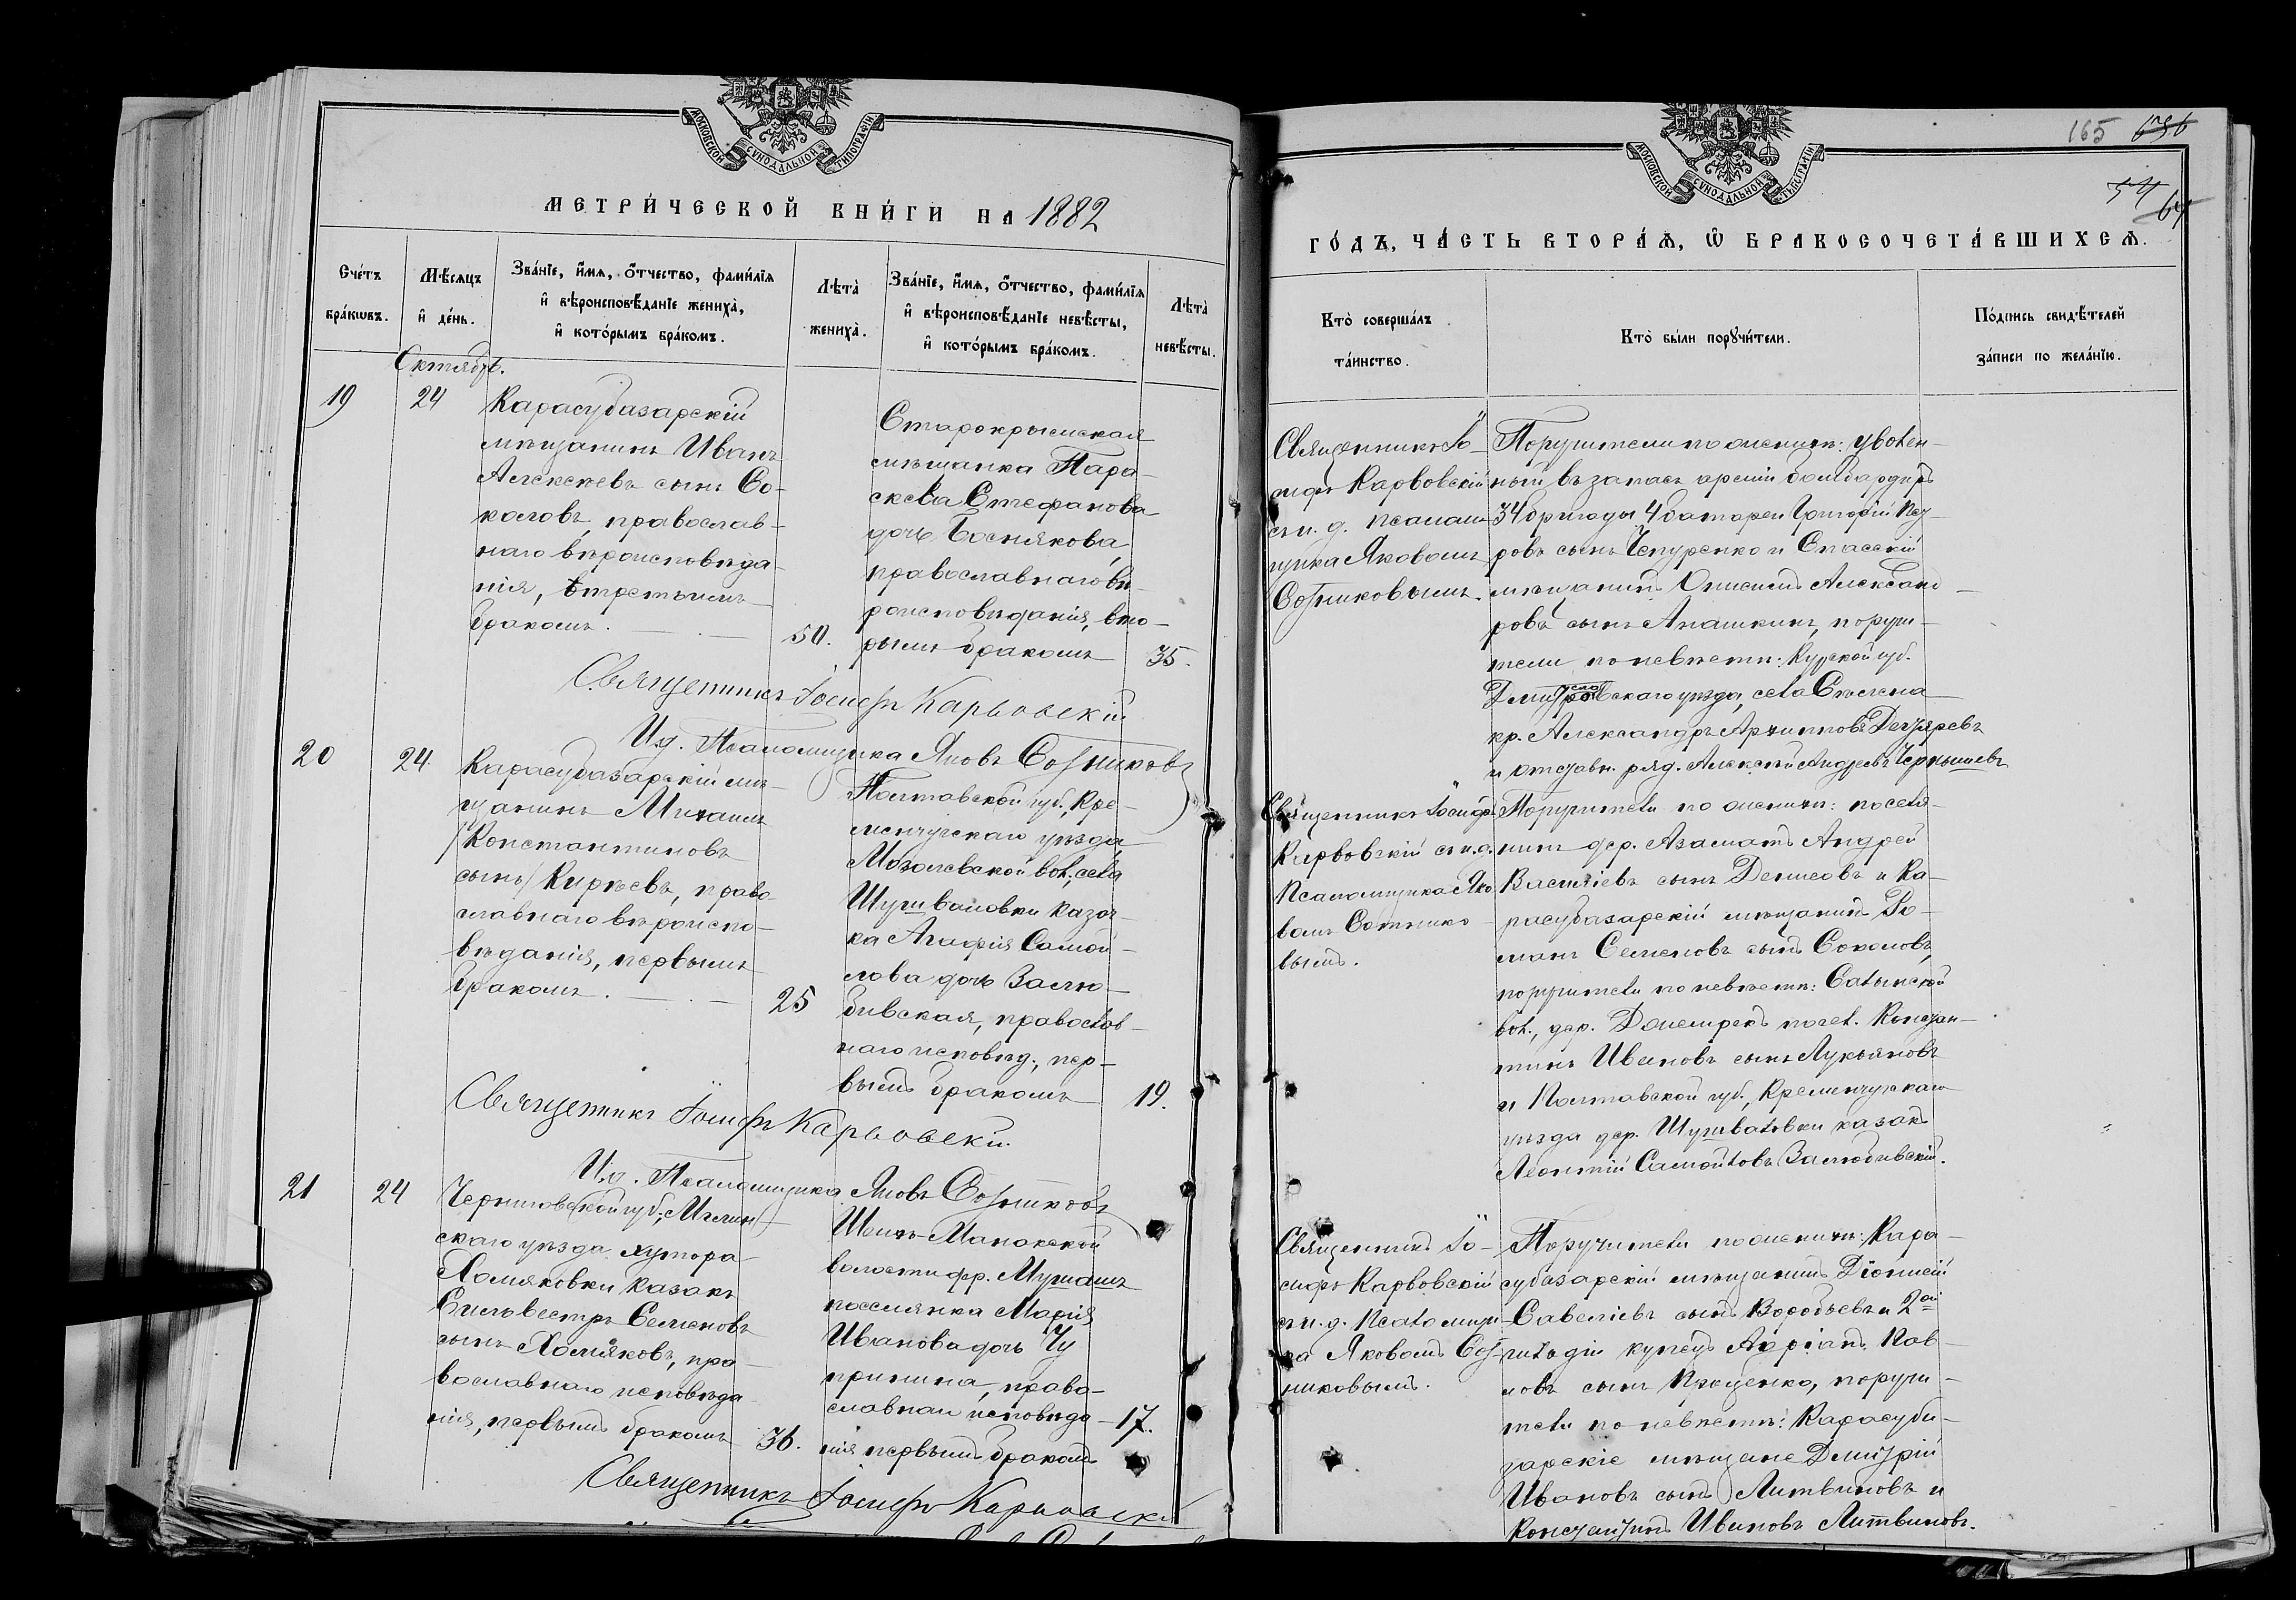 МОСКОВСКОЙ СѴНОДАЛЬНОЙ ТИПОГРАФІИ
МЕТРИ́ЧЕСКОЙ КНИ́ГИ НА 1882
Сче́тъ бра́кωвъ.
Мѣ́сѧцъ и҆ де́нь.
Зва́нїе, и҆́мѧ, ѻ҆́тчество, фами́лїѧ
и҆ вѣроисповѣ́данїе жениха̀,
и҆ кото́рымъ бра́комъ.
Лѣта̀ жениха̀.
Зва́нїе, и҆́мѧ, ѻ҆́тчество, фами́лїѧ
и҆ вѣроисповѣ́данїе невѣ́сты,
и҆ кото́рымъ бра́комъ.
Лѣта̀ невѣ́сты.
Октябрь.
19
24
Карасубазарскій
мѣщанинъ Иванъ
Алексѣевъ сынъ Со-
коловъ, православ-
наго вѣроисповѣда-
нія, третьимъ
бракомъ.
50.
Старокрымская
мѣщанка Пара-
скева Стефанова
дочь Боснякова,
православнаго вѣ-
роисповѣданія, вто-
рымъ бракомъ
35.
Священникъ Іосифъ Карвовскій
И.д. Псаломщика Яковъ Сотниковъ
20
24
Карасубазарскій мѣ-
щанинъ Михаилъ
/Константиновъ
сынъ/ Кирѣевъ, право-
славнаго вѣроиспо-
вѣданія, первымъ
бракомъ.
25
Полтавской губ., Кре-
менчугскаго уѣзда,
вол., села
казач-
ка Агафія Самой-
лова дочь Залю-
бивская, православ-
наго исповѣд., пер-
вымъ бракомъ
19.
Священникъ Іосифъ Карвовскій
И.д. Псаломщика Яковъ Сотниковъ
21
24
Черниговской губ., Мглин-
скаго уѣзда хутора
Хомяковки казакъ
Сильвестръ Семеновъ
сынъ Хомяковъ, пра-
вославнаго исповѣда
нія, первымъ бракомъ
36.
волости дер. Мушашъ
поселянка Марія
Иванова дочь Чу
прынина, право-
славнаго исповѣда-
нія первымъ бракомъ
17.
Священникъ Іосифъ Карвовскі
МОСКОВСКОЙ СѴНОДАЛЬНОЙ ТИПОГРАФІИ
165 636
54
64
ГО́ДЪ, ЧА́СТЬ ВТОРА́Ѧ, Ѽ БРАКОСОЧЕТА́ВШИХСѦ.
Кто̀ соверша́лъ
та́инство.
Кто̀ бы́ли порꙋчи́тели.
По́дпись свидѣ́телей
за́писи по жела́нїю.
Священникъ Іо-
сифъ Карвовскій
съ и. д. псалом-
щика Яковомъ
Сотниковымъ.
Поручители по женихѣ: уволен-
ный въ запасъ арміи бомбардиръ
34 бригады 4 батареи Григорій Пет-
ровъ сынъ Чепуренко и Спасскій
мѣщанинъ Онисимъ Александ-
ровъ сынъ Анашкинъ, поручи-
тели по невѣстѣ: Курской губ.
уѣзда, села
кр. Александръ Архиповъ Дегтяревъ
и отставн. ряд. Алексѣй Андреевъ Чернышевъ
Священникъ Іосифъ
Карвовскій съ и.д.
Псаломщика Яко-
вомъ Сотнико-
вымъ.
Поручители по женихѣ: поселя-
нинъ дер. Азаматъ Андрей
Васильевъ сынъ Денисовъ и Ка-
расубазарскій мѣщанинъ Ро-
манъ Семеновъ сынъ Соколовъ,
поручители по невѣстѣ:
вол., дер. посел. Констан-
тинъ Ивановъ сынъ Лукьяновъ
и Полтавской губ., Кременчугскаго
уѣзда дер. казакъ
Леонтій Самойловъ Залюбивскій.
Священникъ Іо-
сифъ Карвовскій
съ и. д. Псаломщи-
ка Яковомъ Сот-
никовымъ.
Поручители по женихѣ: Кара-
субазарскій мѣщанинъ Діонисій
Савельевъ сынъ Воробьевъ и 2ой
гильдіи купецъ Адріанъ Пав-
ловъ сынъ Проценко, поручи-
тели по невѣстѣ: Карасуба-
зарскіе мѣщане Димитрій
Ивановъ сынъ Литвиновъ и
Константинъ Ивановъ Литвиновъ.